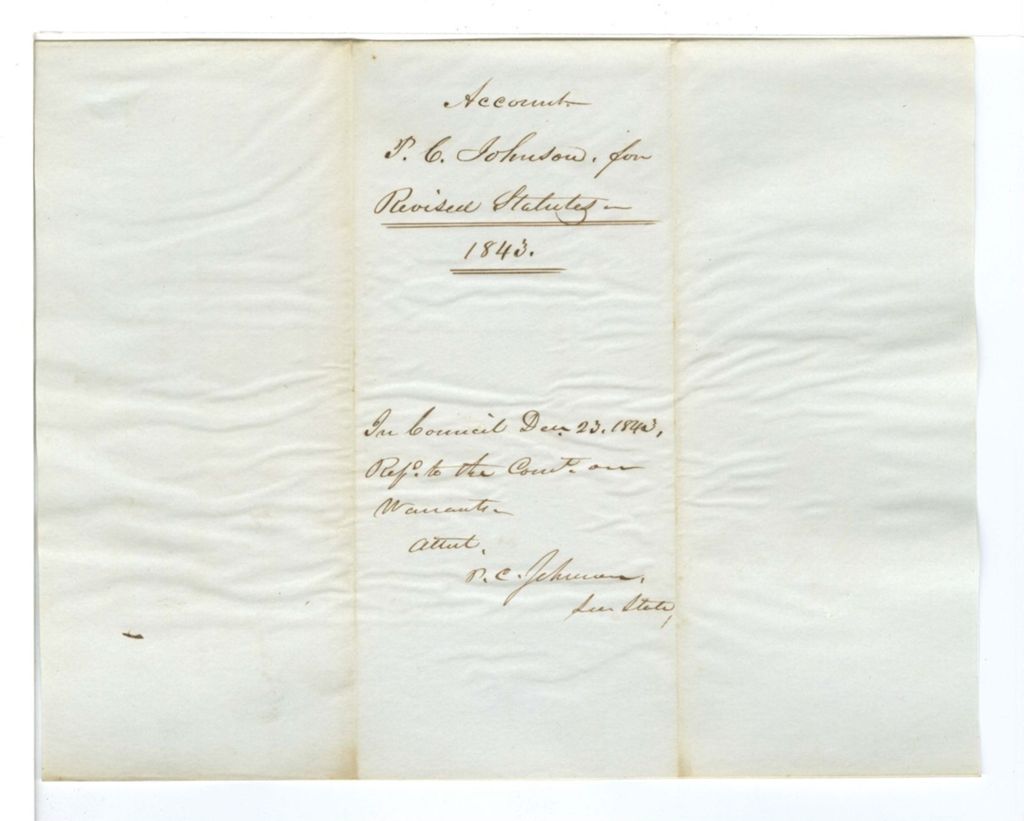 Account
P. C. Johnson, for
Revised Statutes
1843.
In Council Dec. 23. 1843,
Refd. to the Comte. on
Warrants
Attest,
P. C. Johnson,
Sec State,